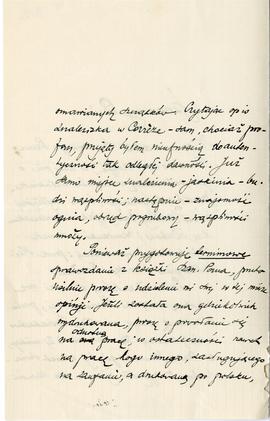 omawianych szczątków. Czytając opis
znaleziska w Corrèze – sam, chociaż pro-
fan, przejęty byłem nieufnością do auten-
tyczności tak odległej dawności. Już
samo miejsce znalezienia – jaskinia – bu-
dzi wątpliwości; następnie – znajomość
ognia, obrzęd pogrzebowy – wątpliwości
mnożą.
Ponieważ przygotowuję terminowe
sprawozdanie z książki Szan. Pana, przeto
usilnie proszę o udzielenie mi w tej mierze
opinji. Jeżeli została ona gdziekolwiek
wydrukowana, proszę o powołanie się
na oną pracę; w ostateczności nawet
na pracę kogo innego, zasługującego
na zaufanie, a drukowaną po polsku,